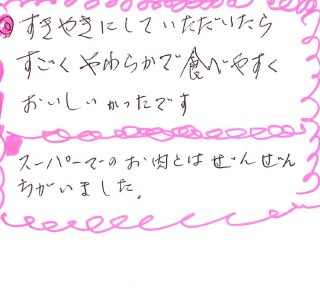 すきやきにしていただいたら
すごくやわらかで食べやすく
おいしいかったです
スーパーでのお肉とはぜんぜん
ちがいました。